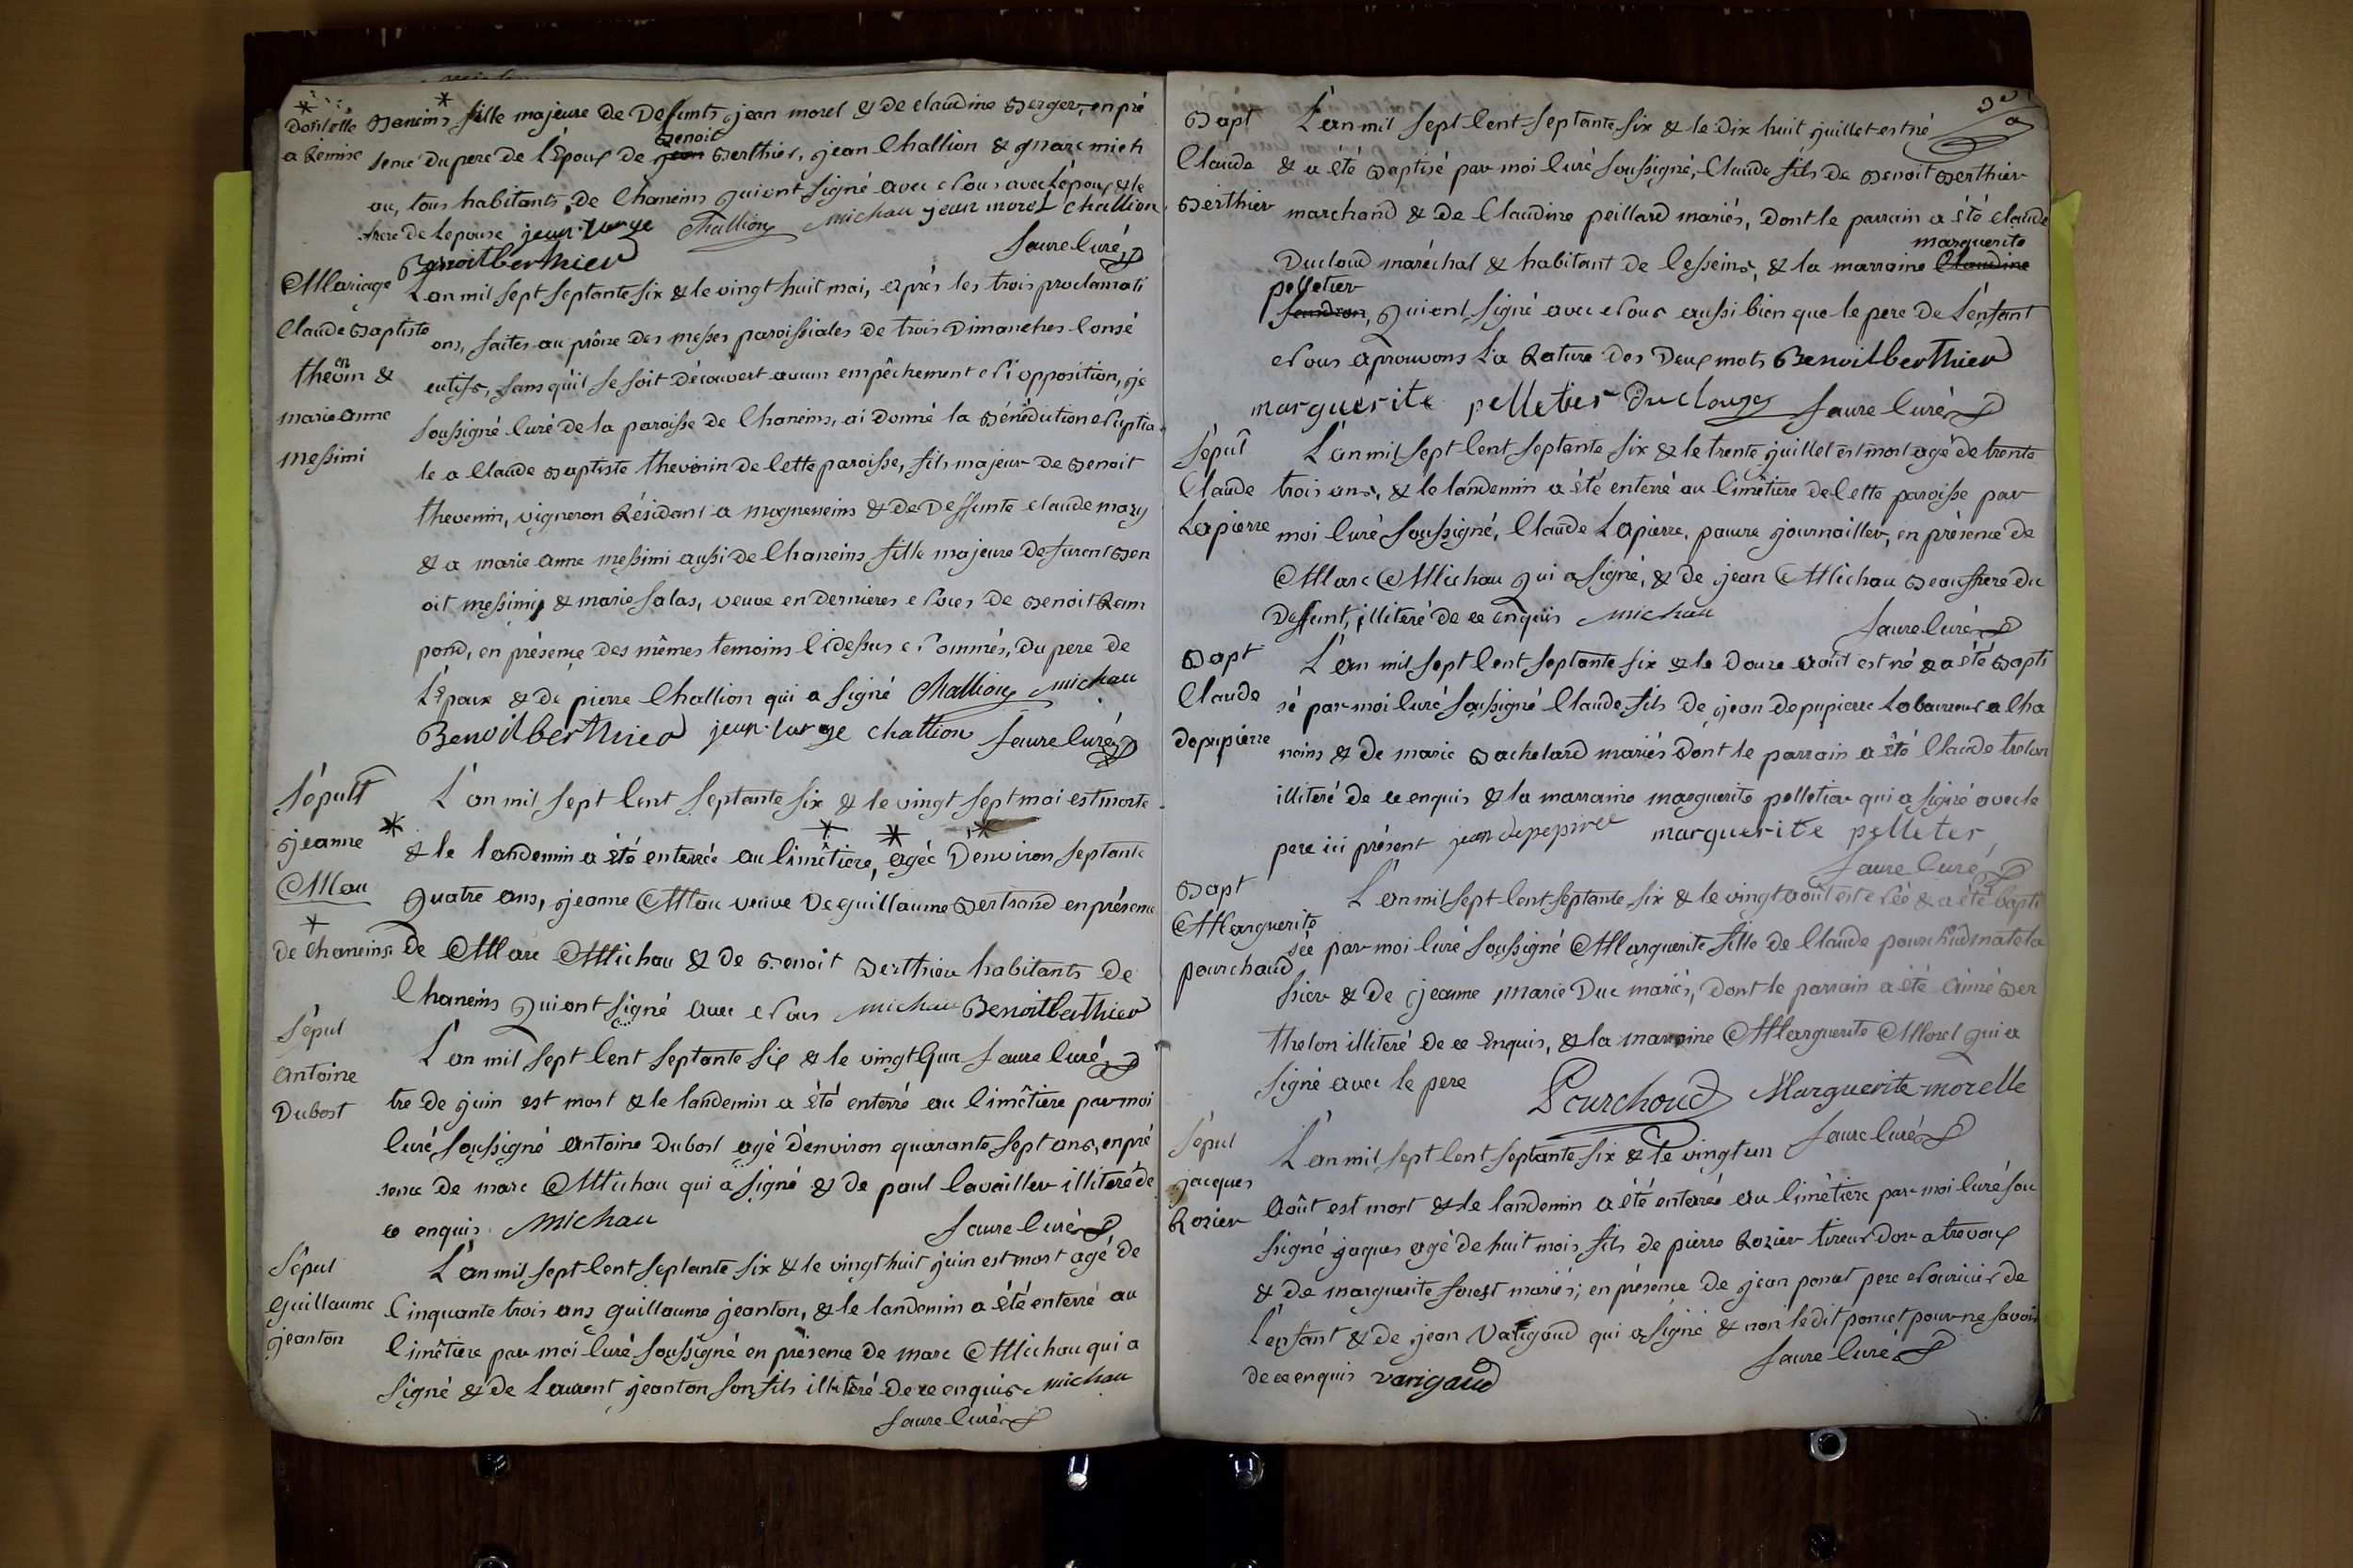 baneins fille majeure de defunts jean morel & de claudine Berger, en pré
sence du pere de l'Epoux de jean Benoit Berthier, jean Challion & marc mich
au, tous habitants de Chaneins qui ont signé avec nous avec l'epoux & le
frere de l'epouse Challion michau jean morel challion
Benoitberthier faure Curé
Mariage
Claude Baptiste
thevenin &
marie anne
messimi
L'an mil sept septante six & le vingt huit mai, après les trois proclamati
ons, faites au prône des messes paroissiales de trois Dimanches Consé
cutifs, sans qu'il se soit découvert aucun empêchement ni opposition, je
soussigné Curé de la paroisse de Chaneins, ai donné la Bénédiction nuptia
le a Claude Baptiste thevenin de Cette paroisse, fils majeur de Benoit
thevenin, vigneron Résidant a mogneneins & de Deffunte claude mazy
& a marie anne messimi aussi de Chaneins fille majeure de furent Ben
oit messimy & marie salas, veuve en dernieres noces de Benoit Ram
pond, en présence des mêmes temoins Cidessus nommés, du pere de
l'Epoux & de pierre Challion qui a signé Challion michau
Benoitberthier challion faure Curé
Sépult
jeanne
Mau
de Chaneins
L'an mil sept Cent septante six & le vingt sept mai est morte
& le landemin a été enterrée au Cimêtiere, agée D'environ septante
quatre ans, jeanne Mau veuve de guillaume Bertrand en présence
de Marc Michau & de Benoit Berthier habitants de
Chaneins qui ont signé avec nous michau Benoitberthier
faure Curé
Sépul
antoine
Dubost
L'an mil sept Cent septante six & le vingt qua
tre de juin est mort & le landemin a été enterré au Cimêtiere par moi
Curé soussigné antoine Dubost agé d'environ quarante sept ans, en pré
sence de marc Michau qui a signé & de paul lavailler illiteré de
ce enquis Michau faure Curé
Sépul
guillaume
jeanton
L'an mil sept Cent septante six & le vingt huit juin est mort agé de
Cinquante trois ans guillaume jeanton, & le landemin a été enterré au
Cimêtiere par moi Curé soussigné en présence de marc Michau qui a
signé & de Laurent jeanton son fils illiteré de ce enquis michau
faure Curé
Bapt
Claude
Berthier
L'an mil sept Cent septante six & le dix huit juillet est né
& a été Baptisé par moi Curé soussigné, Claude fils de Benoit Berthier
marchand & de Claudine peillard mariés, dont le parrain a été claude
Ducloud maréchal & habitant de Cesseins, & la marraine Claudine marguerite
pelletier
qui ont signé avec nous aussi bien que le pere de L'enfant
nous aprouvons La Rature des Deux mots Benoitberthier
marguerite pelletier faure Curé
Sépul
Claude
Lapierre
L'an mil sept Cent septante six & le trente juillet est mort agé de trente
trois ans, & le landemin a été enterré au Cimêtiere de Cette paroisse par
moi Curé soussigné, Claude Lapierre, pauvre journaillier, en présence de
Marc Michau qui a signé, & de jean Michau Beaufrere du
Deffunt, illiteré de ce enquis michau faure Curé
Bapt
Claude
depupierre
L'an mil sept Cent septante six & le Douze août est né & a été Bapti
sé par moi Curé soussigné Claude, fils de jean depupierre Laboureur a Cha
neins & de marie Bachelard mariés dont le parrain a été Claude trelon
illiteré de ce enquis & la marraine marguerite pelletier qui a signé avec le
pere ici présent jean depepiree marguerite pelleter
faure Curé
Bapt
Marguerite
pourchoud
L'an mil sept Cent septante six & le vingt août est née & a été Bapti
sée par moi Curé soussigné Marguerite fille de Claude pourchoud matela
ssier & de jeanne marie Duc mariés, dont le parrain a été Aimé Ber
thelon illiteré de ce Enquis, & la marraine Marguerite Morel qui a
signé avec le pere Pourchoud Marguerite morelle
faure Curé
Sépul
jacques
Rozier
L'an mil sept Cent septante six & le vingt un
août est mort & le landemin a été enterré au Cimêtiere par moi Curé sou
ssigné jaques agé de huit mois, fils de pierre Rozier tireur d'or a trevoux
& de marguerite forest mariés; en présence de jean poncet pere nouricier de
L'enfant & de jean Varigaud qui a signé & non le dit poncet pour ne savoir
de ce enquis varigaud faure Curé